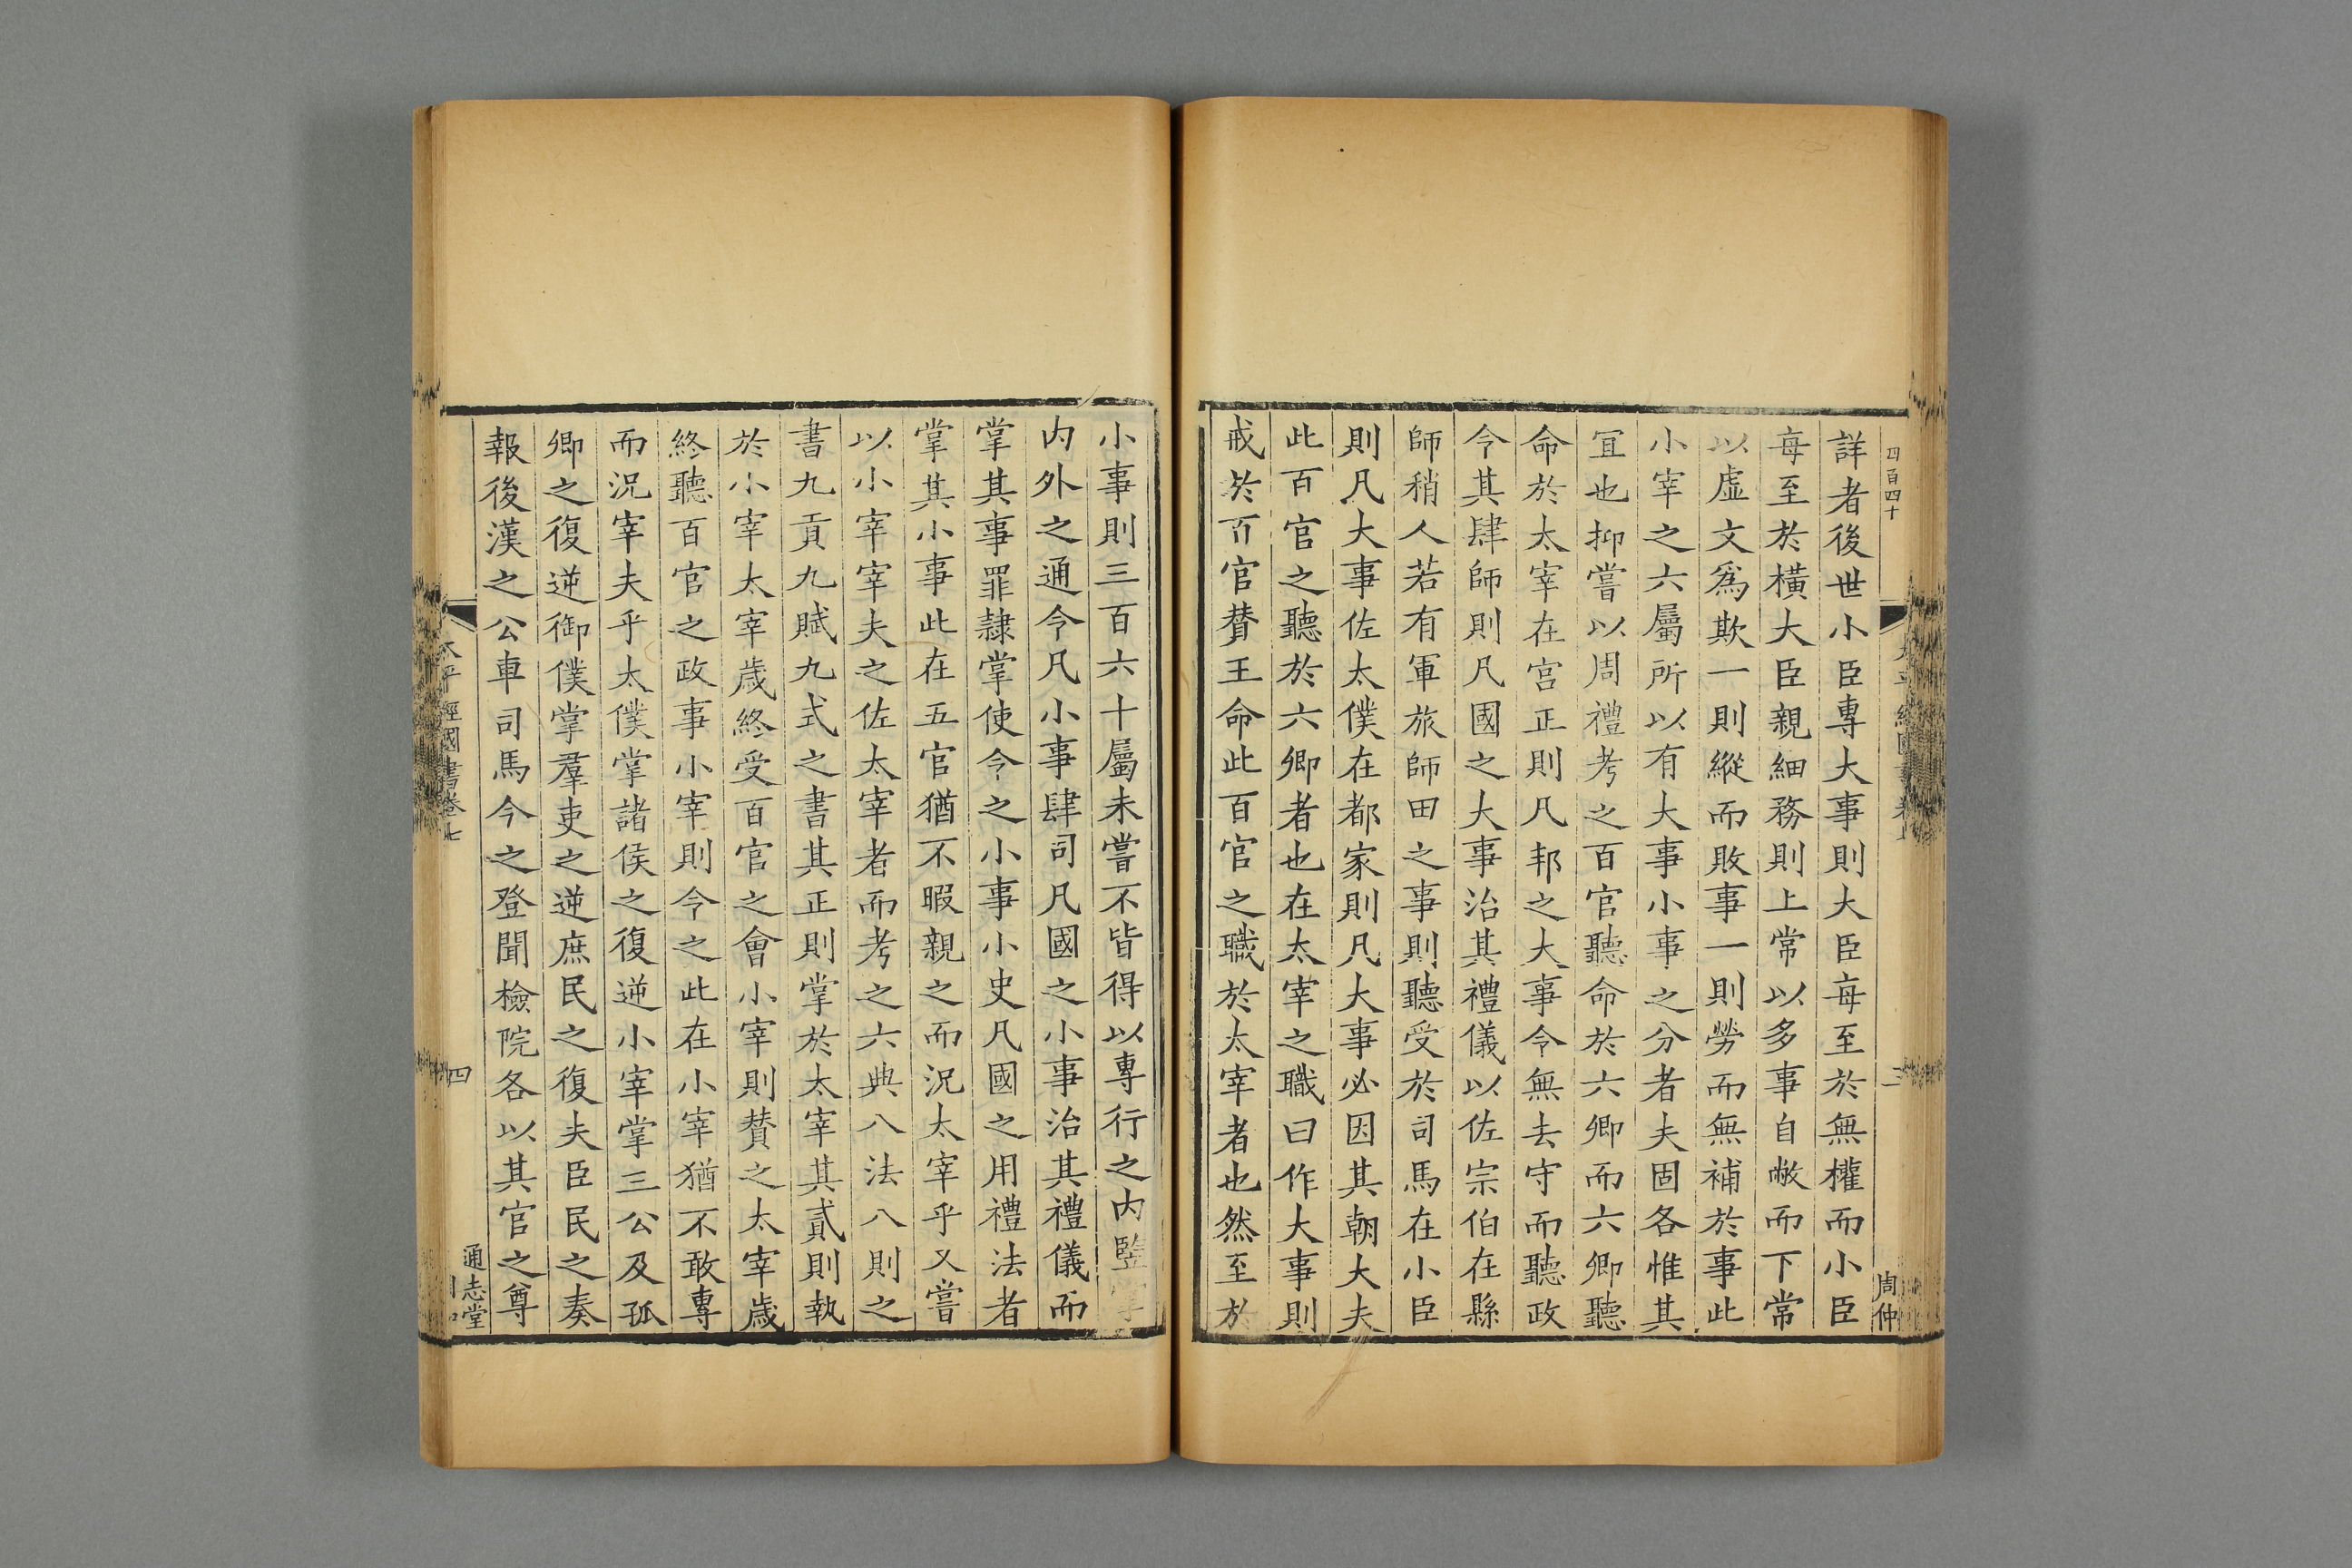 四百四十
三
周仲
詳者後世小臣專大事則大臣每至於無權而小臣
每至於橫大臣親細務則上常以多事自敝而下常
以虛文爲欺一則縱而敗事一則勞而無補於事此
小宰之六屬所以有大事小事之分者夫固各惟其
宜也抑嘗以周禮考之百官聽命於六卿而六卿聽
命於太宰在宮正則凡邦之大事令無去守而聽政
令其肆師則凡國之大事治其禮儀以佐宗伯在縣
師稍人若有軍旅師田之事則聽受於司馬在小臣
則凡大事佐太僕在都家則凡大事必因其朝大夫
此百官之聽於六卿者也在太宰之職曰作大事則
戒於百官贊王命此百官之職於太宰者也然至於
小事則三百六十屬未嘗不皆得以專行之内豎掌
内外之通令凡小事肆司凡國之小事治其禮儀而
掌其事罪隷掌使令之小事小史凡國之用禮法者
掌其小事此在五官猶不暇親之而況太宰乎又嘗
以小宰宰夫之佐太宰者而考之六典八法八則之
書九貢九賦九式之書其正則掌於太宰其貳則執
於小宰太宰歲終受百官之會小宰則贊之太宰歲
終聽百官之政事小宰則令之此在小宰猶不敢專
而況宰夫乎太僕掌諸侯之復逆小宰掌三公及孤
卿之復逆御僕掌羣吏之逆庶民之復夫臣民之奏
報後漢之公車司馬今之登聞檢院各以其官之尊
太平經國書卷七
四
通志堂